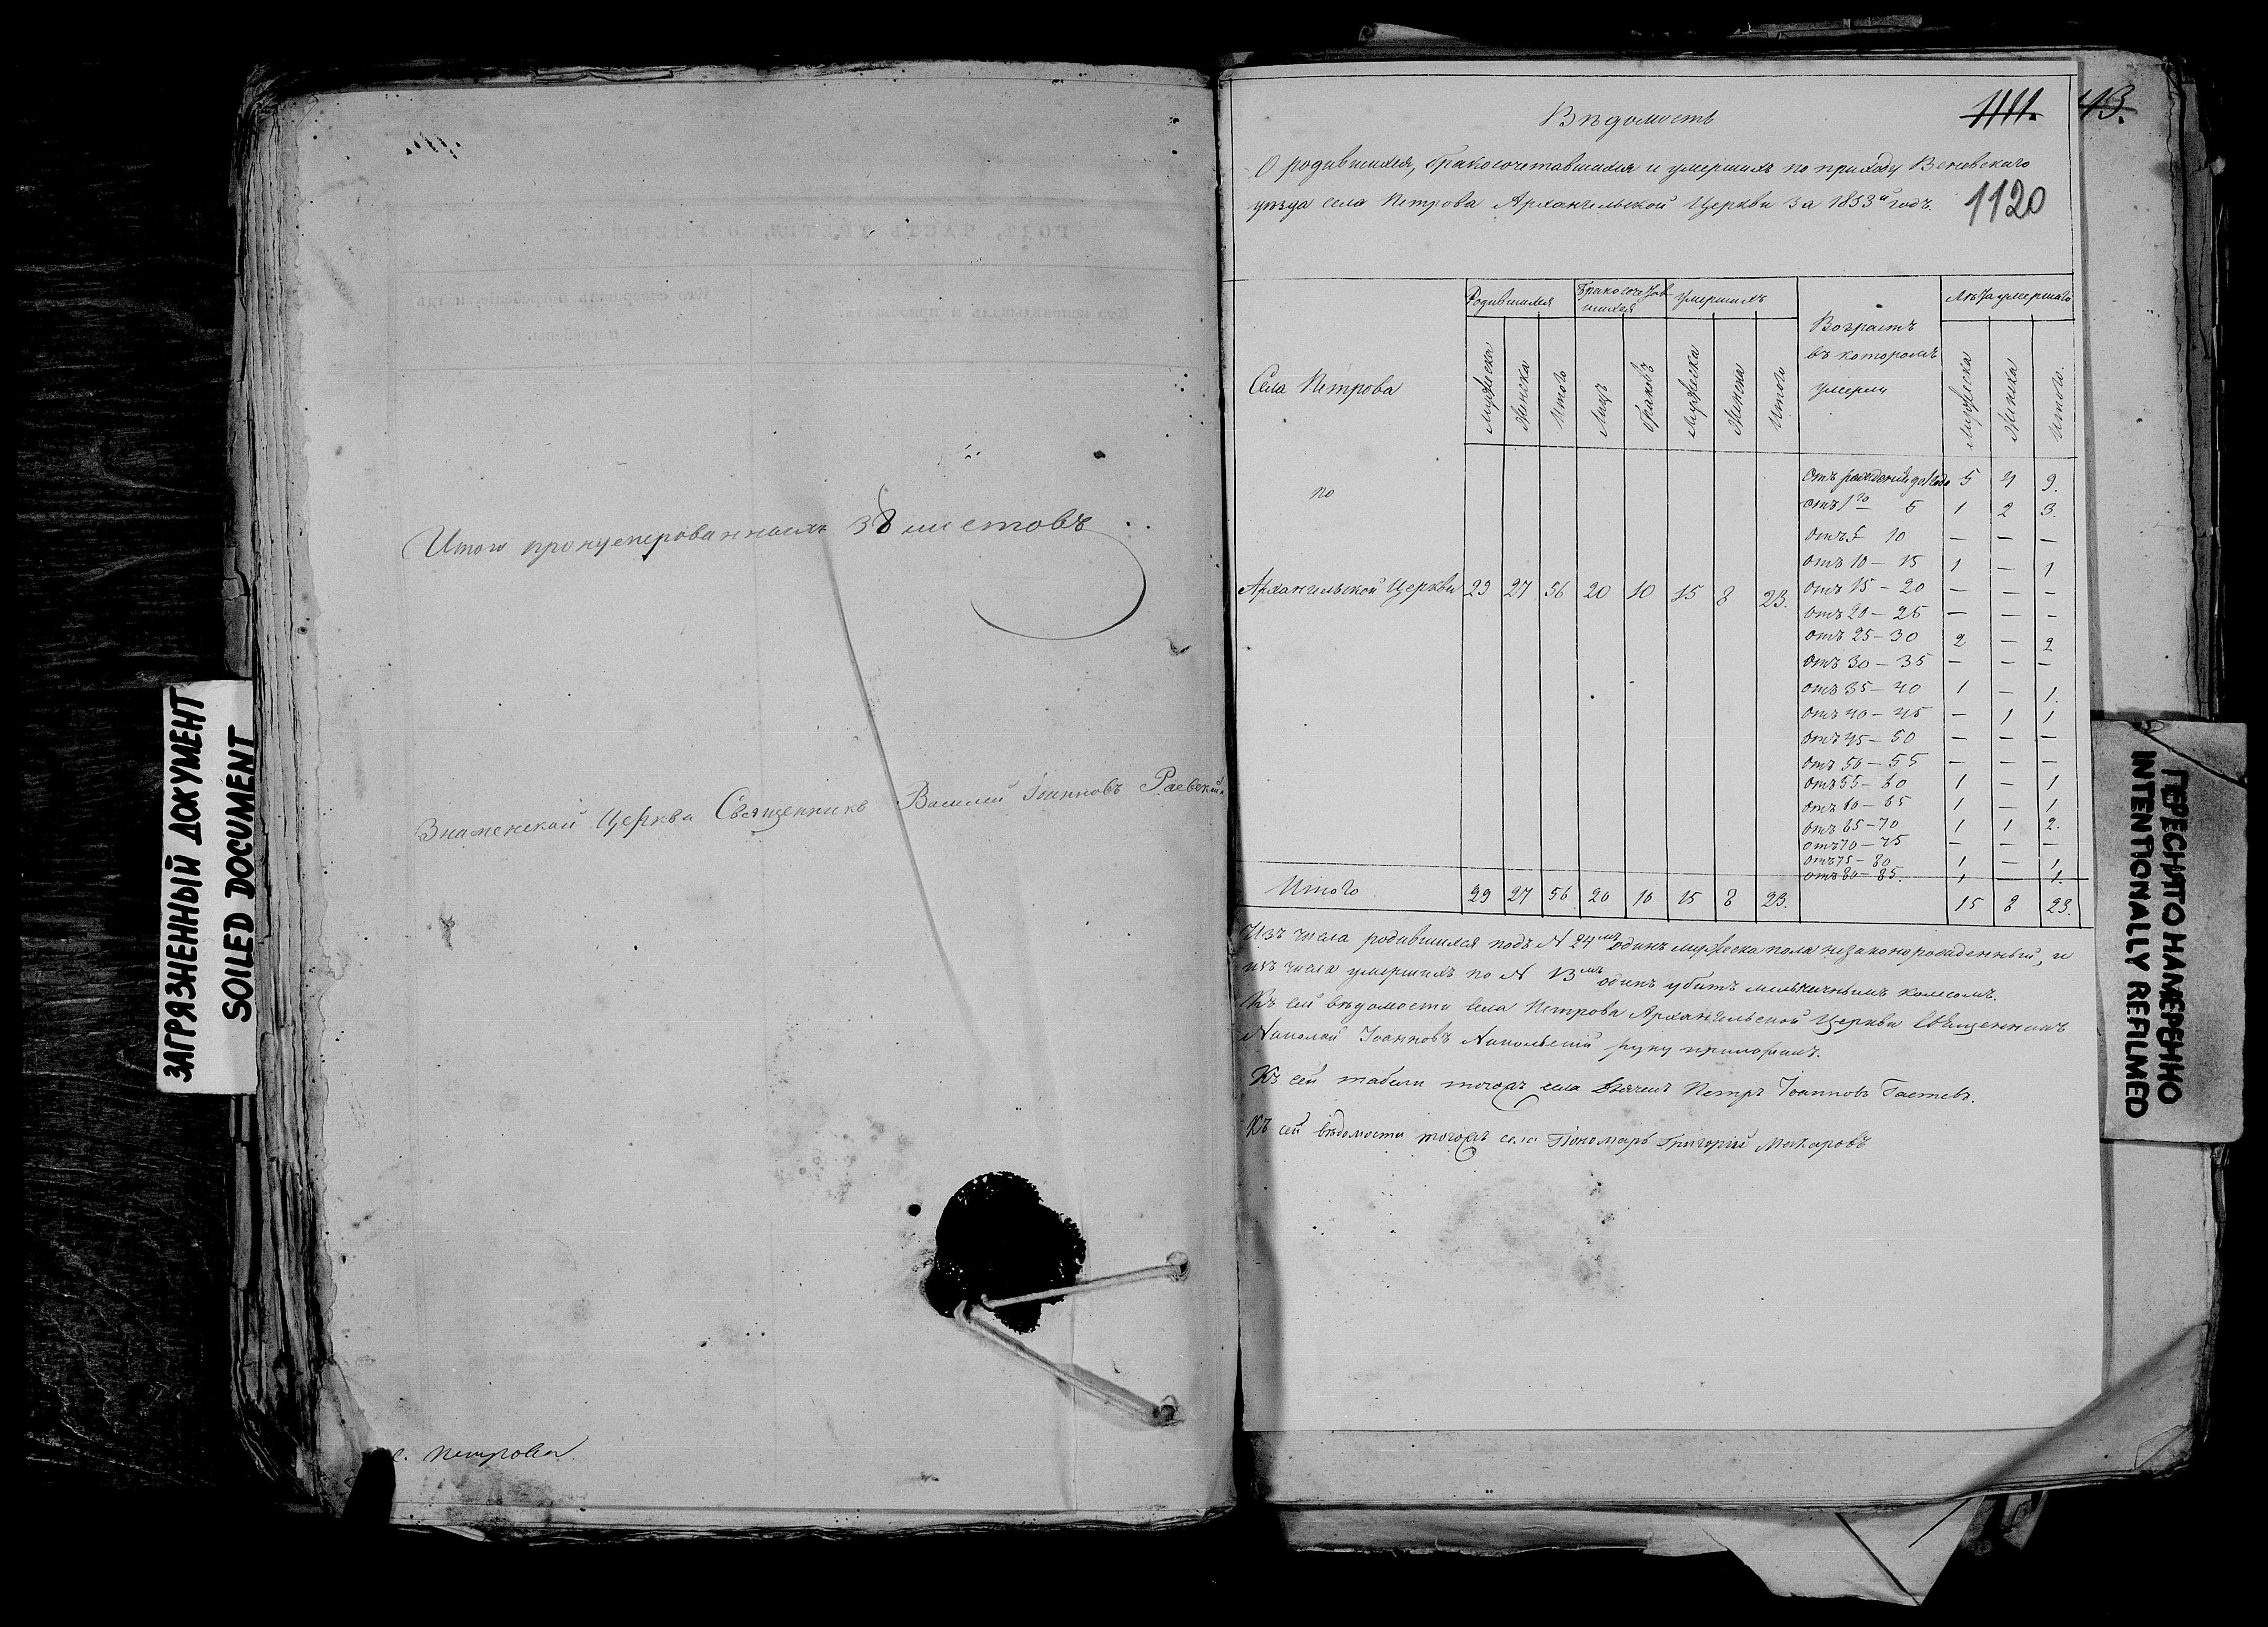 Итого пронумерованныхъ 38 листовъ
Знаменской Церкви Священникъ Василий Іоанновъ Раевский
с. Петрова
ЗАГРЯЗНЕННЫЙ ДОКУМЕНТ
SOILED DOCUMENT
1111. 43.
Вѣдомость
О родившихся, бракосочетавшихся и умершихъ по приходу Веневскаго
уѣзда села Петрова Архангельской Церкви за 1853й годъ.
1120
Села Петрова
Родившихся
Бракосочетав
шихся
Умершихъ
Возрастъ
въ которомъ
умерли
Лѣта умершаго
Мужеска Женска Итого Лицъ Браковъ Мужеска Женска Итого Мужеска Женска Итого.
по
Архангельской Церкви 29 27 56 20 10 15 8 23.
Отъ рожденія до 1 года 5 4 9.
отъ 1го — 5 1 2 3.
Отъ 5 10 — — —
Отъ 10 — 15 1 — 1
Отъ 15 — 20 — — —
Отъ 20 — 25 — — —
Отъ 25 — 30 2 — 2
Отъ 30 — 35 — — —
Отъ 35 — 40 1 — 1.
Отъ 40 — 45 — 1 1
Отъ 45 — 50 — — —
Отъ 50 — 55 — — —
Отъ 55 — 60 1 — 1
Отъ 60 — 65 1 — 1.
Отъ 65 — 70 1 1 2.
Отъ 70 — 75 — — —
Отъ 75 — 80 1 — 1.
Отъ 80 — 85. 1 — 1.
Итого 29 27 56 20 10 15 8 23. 15 8 23.
Изъ числа родившихся подъ N 24мъ одинъ мужеска пола незаконорожденный, и
изъ числа умершихъ по N 13мъ одинъ убитъ мельничнымъ колесомъ.
Къ сей вѣдомости села Петрова Архангельской Церкви Священникъ
Николай Іоанновъ Никольский руку приложилъ.
Къ сей табели тогожъ села Дьячекъ Петръ Іоанновъ
Къ сей вѣдомости тогожъ села Пономарь Григорий Макаровъ
ПЕРЕСНЯТО НАМЕРЕННО
INTENTIONALLY REFILMED